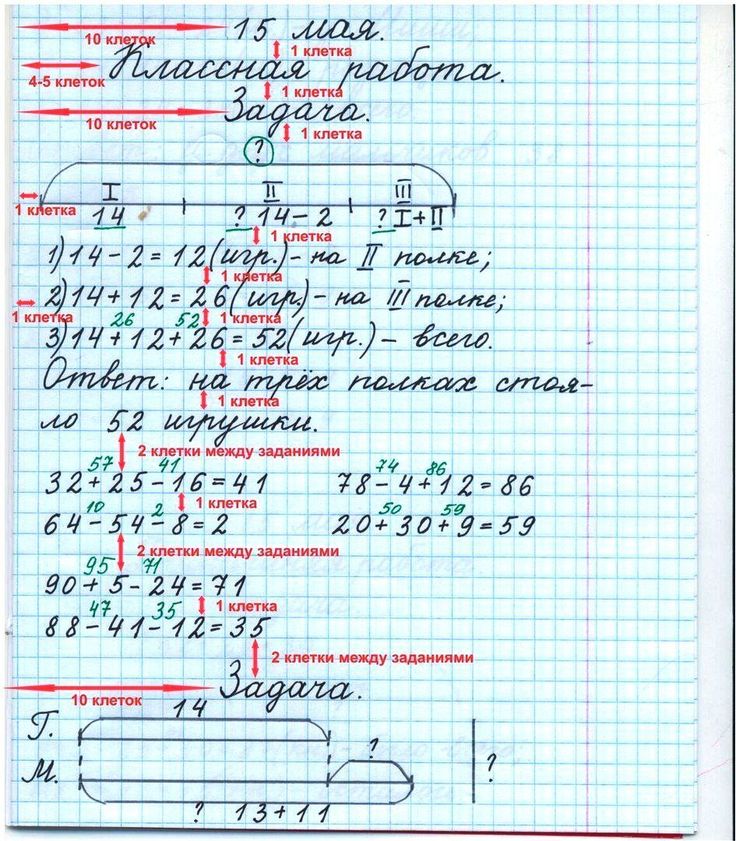 10 клеток 15 мая.
1 клетка
4-5 клеток Классная работа.
1 клетка
10 клеток Задача.
1 клетка
?
I II III
1 клетка 14 ? 14-2 ? I+II
1 клетка
1) 14-2=12(игр.)- на II полке;
1 клетка
2) 14+12=26(игр.)- на III полке;
1 клетка 1 клетка
26 52
3) 14+12+26=52(игр.)- всего.
1 клетка
Ответ: на трёх полках стоя-
1 клетка
ло 52 игрушки.
2 клетки между заданиями
57 41 74 86
32+25-16=41 78-4+12=86
1 клетка
10 2 50 59
64-54-8=2 20+30+9=59
2 клетки между заданиями
95 71
90+5-24=71
1 клетка
47 35
88-41-12=35
2 клетки между заданиями
Задача.
10 клеток
14
Г.
?
М. ?
? 13+11